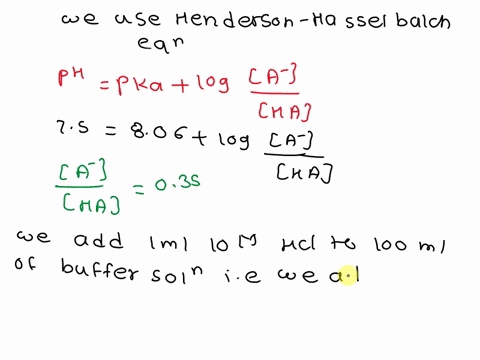 we use Henderson-Hasselbalch
eqn
pH = pKa + log [A-]/[HA]
7.5 = 8.06 + log [A-]/[HA]
[A-]/[HA] = 0.35
we add 1ml 10M HCl to 100 ml
of buffer soln i.e we a